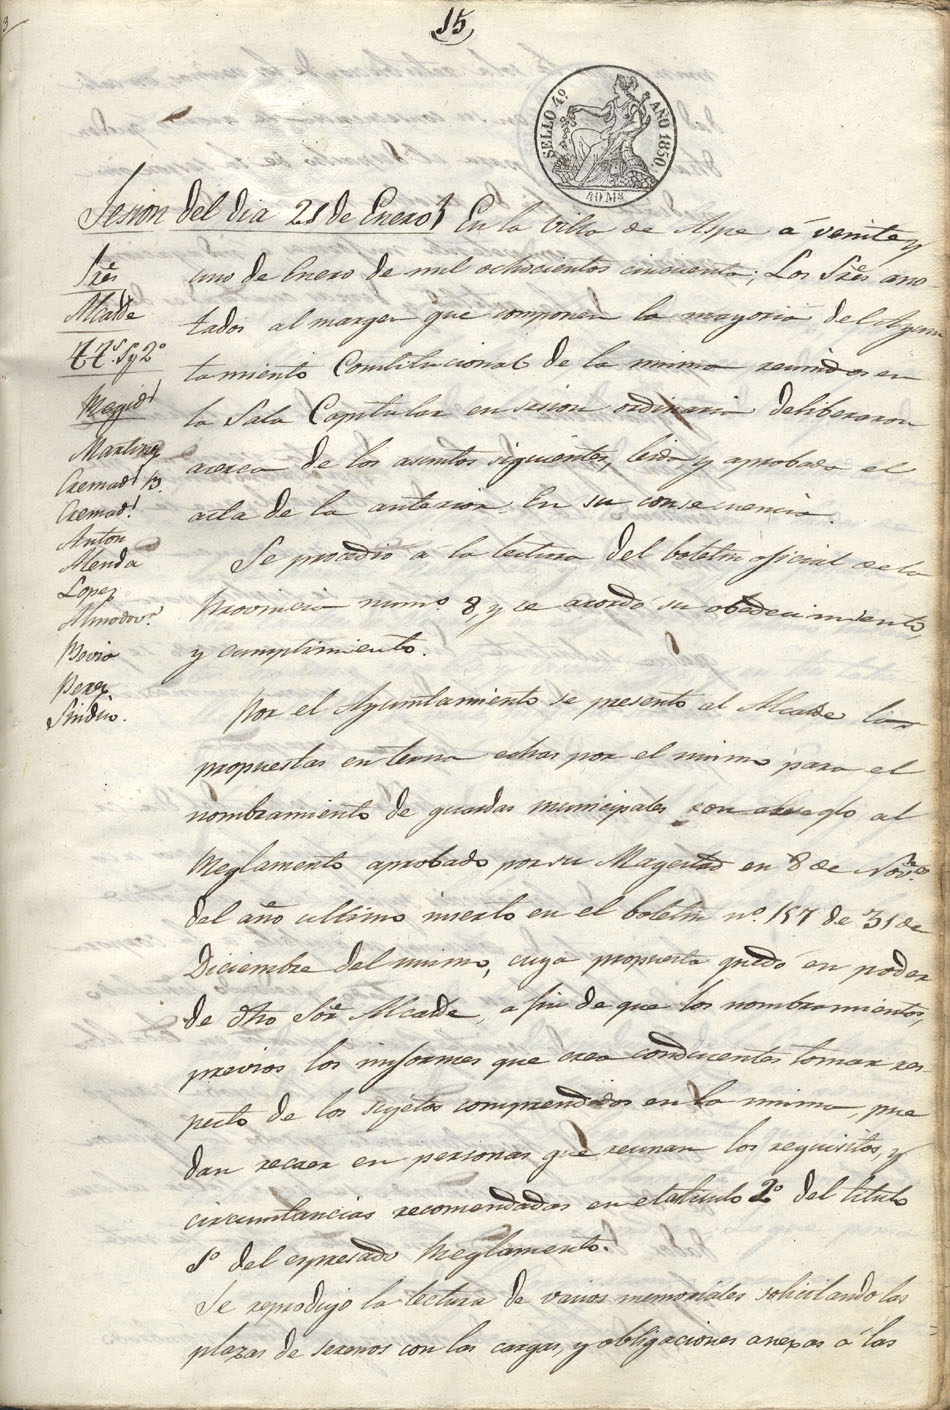 15
SELLO 4º AÑO 1850.
40 Ms
Sesion del dia 21 de Enero
Sres
Alcalde
TTs. 1º y 2º
Regid.s
Martinez
Cremad.s B.
Cremad.s
Anton
Alenda
Lopez
Almodov.r
Pavia
Perez
Sindico.
En la Villa de Aspe a veinte y
uno de Enero de mil ochocientos cincuenta; Los Sres ano
tados al margen que componen la mayoria del Ayun
tamiento Constitucional de la misma reunidos en
la Sala Capitular en sesion ordinaria deliberaron
acerca de los asuntos siguientes, leida y aprobada el
acta de la anterior. En su consecuencia.
Se procedió a la lectura del boletin oficial de la
Provincia num.º 8, y se acordó su obedecimiento,
y cumplimiento.
Por el Ayuntamiento se presentó al Alcalde las
propuestas en terna echas por el mismo para el
nombramiento de guardas municipales con arreglo al
Reglamento aprobado por su Magestad en 8 de Nov.e
del año ultimo inserto en el boletin nº. 157 de 31 de
Diciembre del mismo, cuya propuesta quedó en poder
de dho Sor Alcalde, a fin de que los nombramientos,
previos los informes que crea conducentes tomar res-
pecto de los sujetos comprendidos en la misma, pue
dan recaer en personas que reunan los requisitos, y
circunstancias recomendadas en el articulo 2º del titulo
1º del expresado Reglamento.
Se reprodujo la lectura de varios memoriales solicitando las
plazas de serenos con las cargas, y obligaciones anexas a las